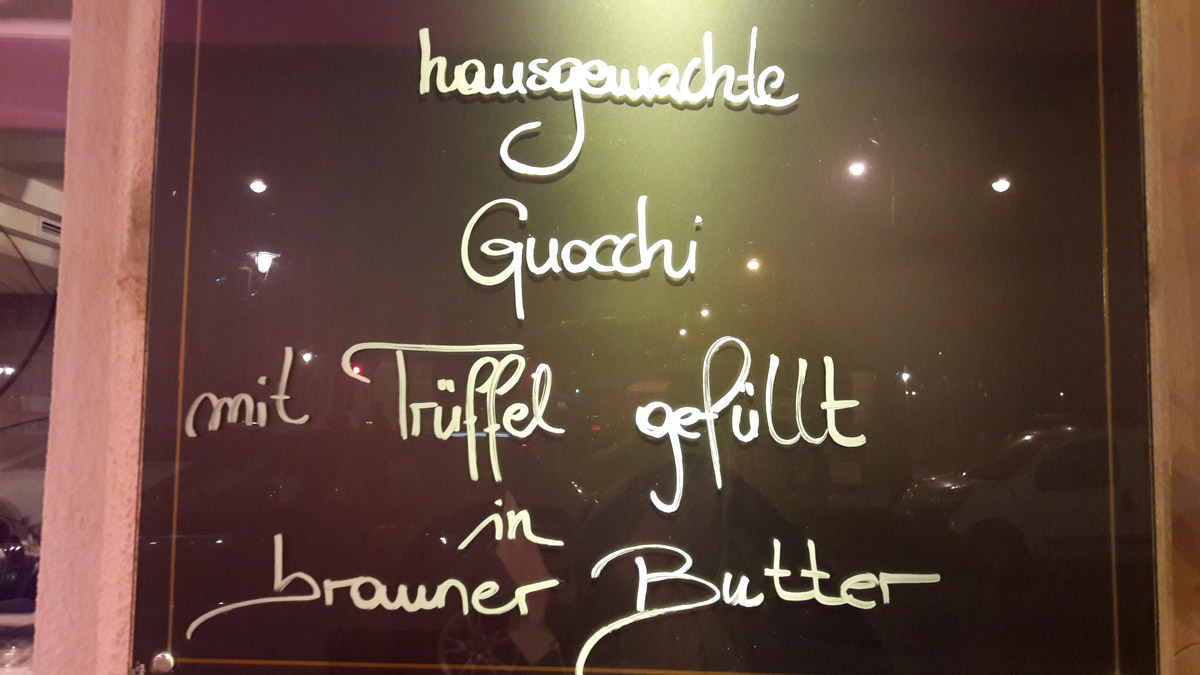 hausgemachte
Guocchi
mit Trüffel gefüllt
in
brauner Butter